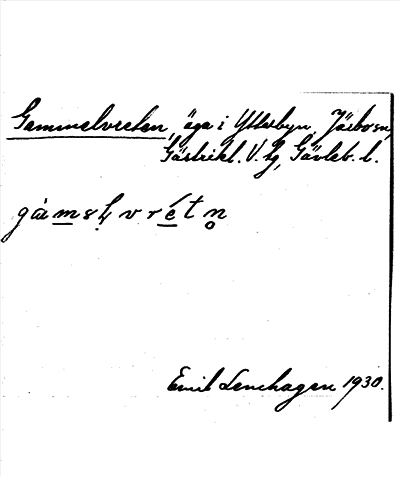 Gammelvreten, äga i Ytterbyn, Järbo sn,
Gästrikl. V. tg, Gävleb. l.
gàmsḷvrétn̥
Emil Lenhagen 1930.